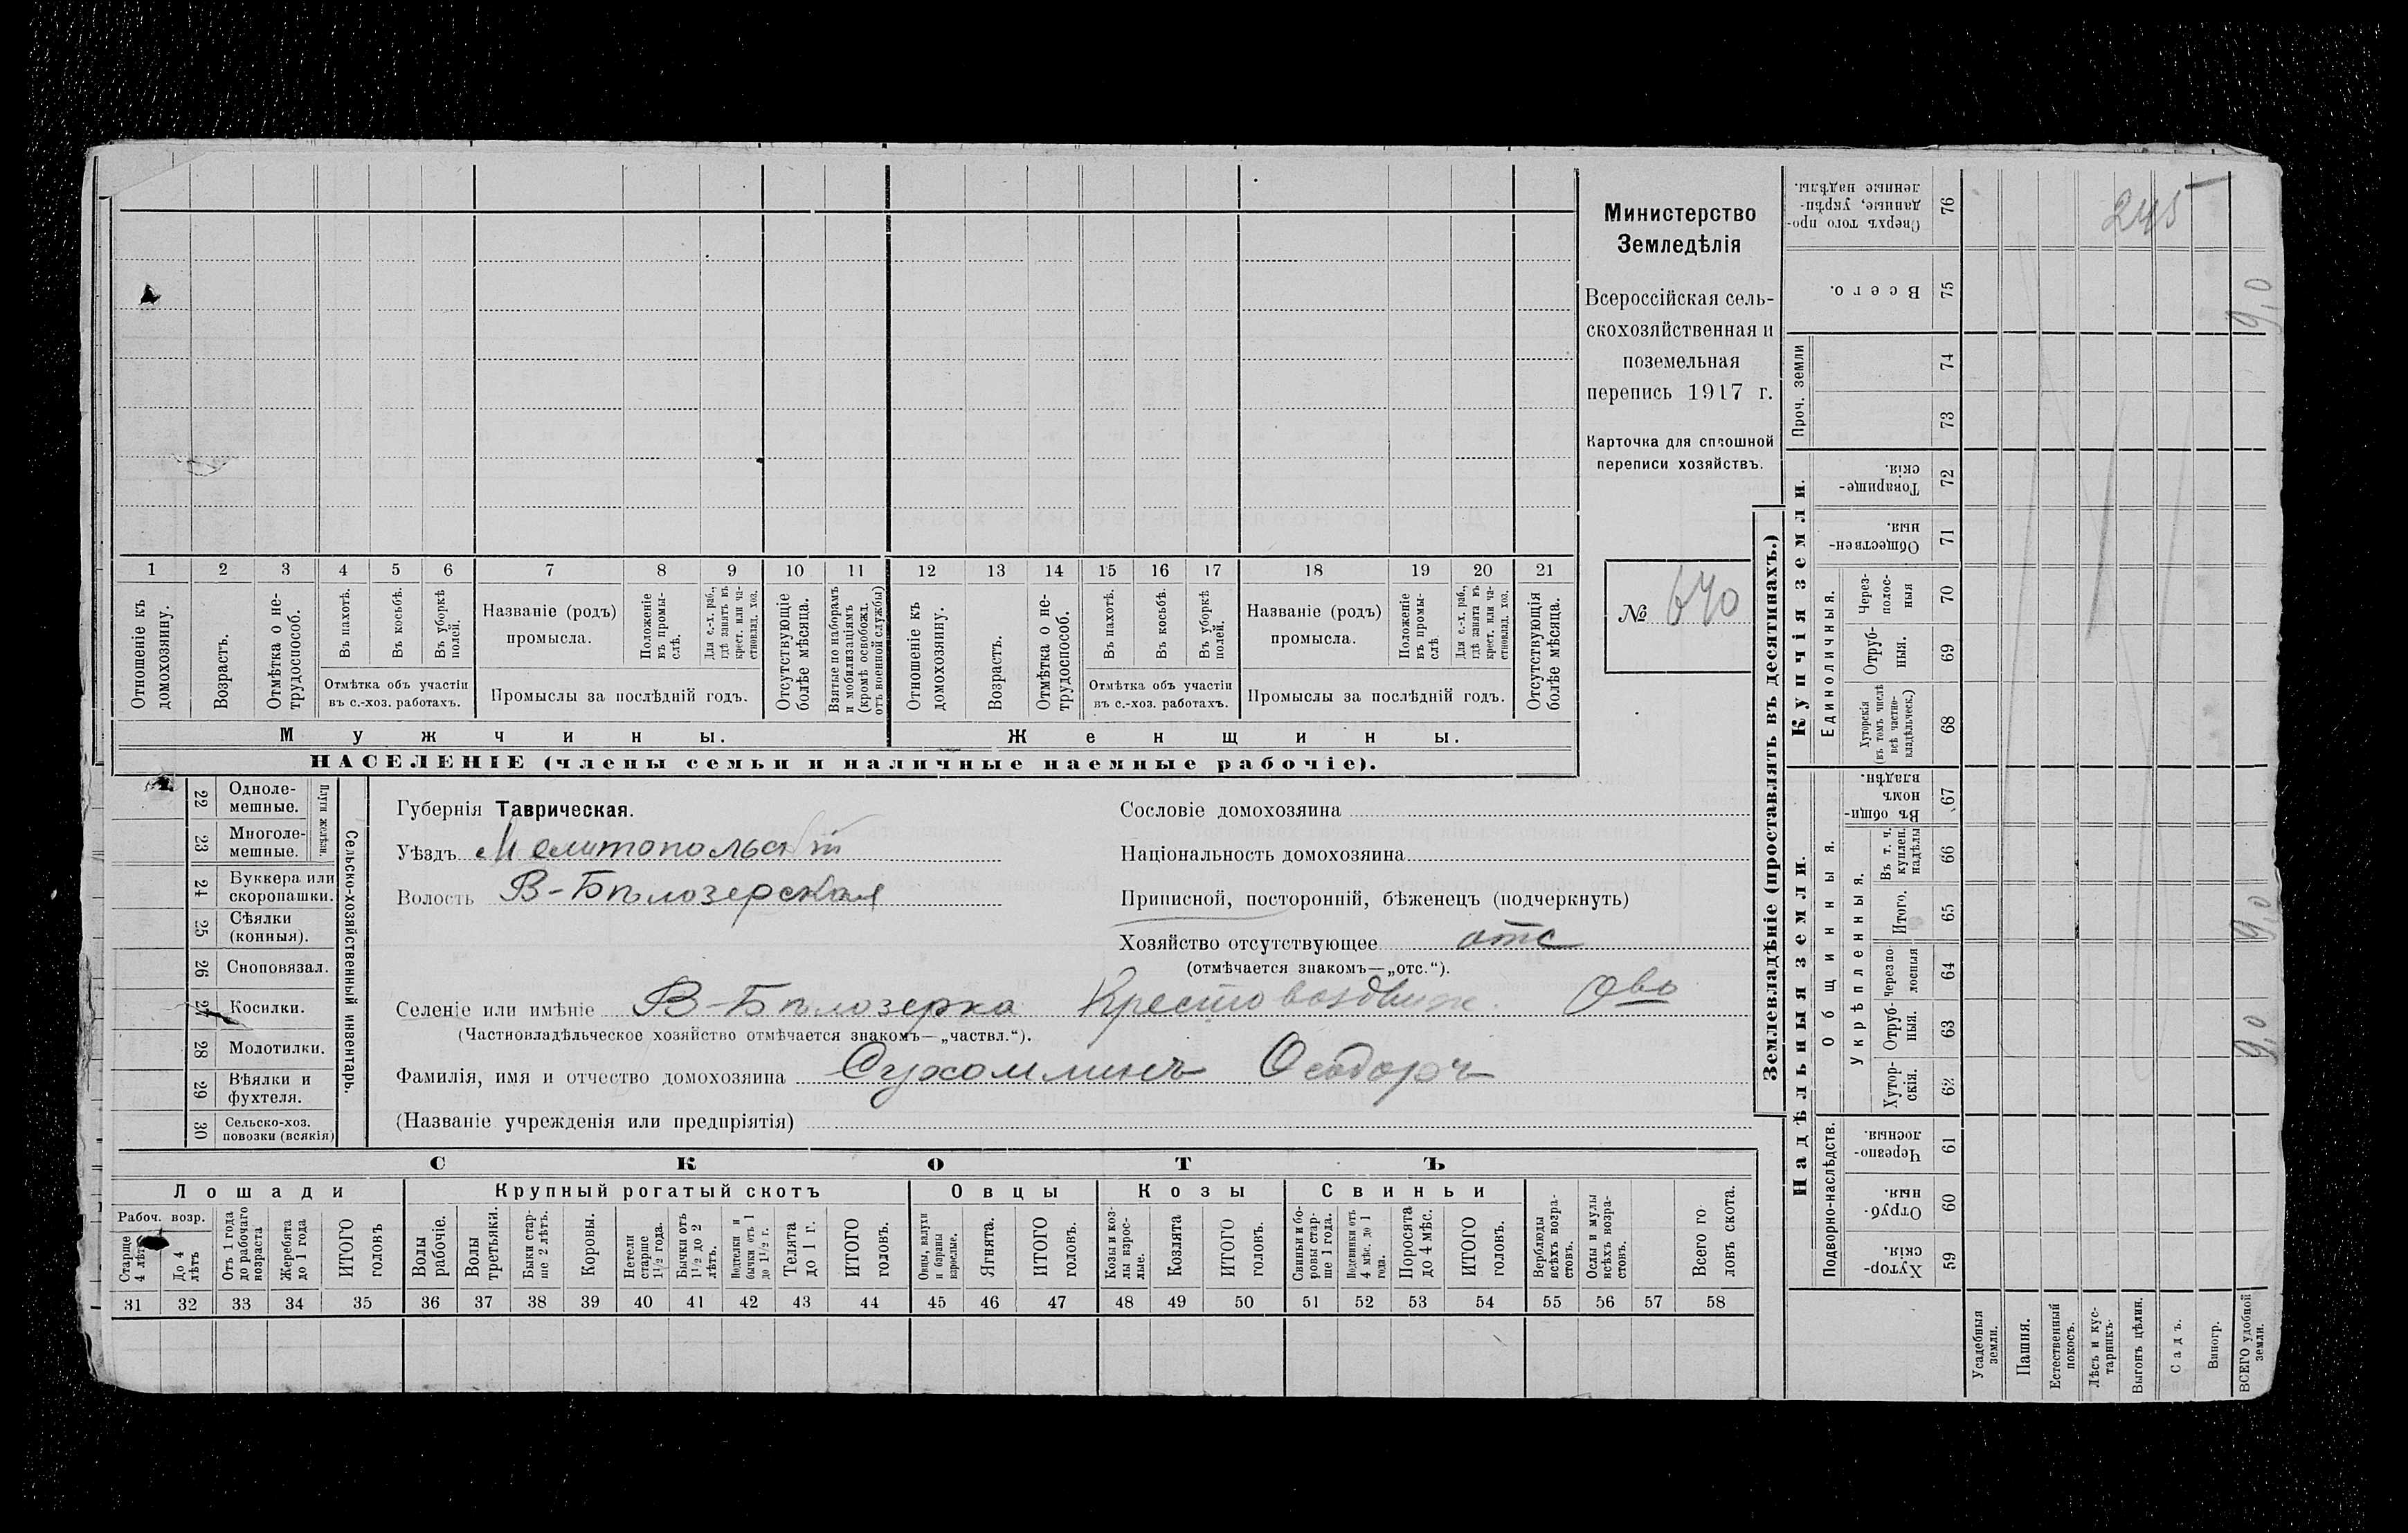 Министерство
Земледѣлія
Всероссійская сель-
скохозяйственная и
поземельная
перепись 1917 г.
Карточка для сплошной
переписи хозяйствъ.
№ 640
1 2 3 4 5 6 7 8 9 10 11 12 13 14 15 16 17 18 19 20 21
Отношеніе къ домохозяину.
Возрастъ.
Отмѣтка о не-трудоспособ.
Въ пахотѣ.
Въ косьбѣ.
Въ уборкѣ полей.
Отмѣтка объ участіи
въ с.-хоз. работахъ.
Названіе (родъ)
промысла.
Положеніе въ промы-слѣ.
Для с.-х. раб., гдѣ занятъ въ крест. или ча-стновлад. хоз.
Промыслы за послѣдній годъ.
Отсутствующіе болѣе мѣсяца.
Взятые по наборамъ и мобилизаціямъ (кромѣ освобожд. отъ военной службы)
Отношеніе къ домохозяину.
Возрастъ.
Отмѣтка о не-трудоспособ.
Въ пахотѣ.
Въ косьбѣ.
Въ уборкѣ полей.
Отмѣтка объ участіи
въ с.-хоз. работахъ.
Названіе (родъ)
промысла.
Положеніе въ промы-слѣ
Для с.-х. раб., гдѣ занята въ крест. или ча-стновлад. хоз.
Промыслы за послѣдній годъ.
Отсутствующія болѣе мѣсяца.
Мужчины.
Женщины.
НАСЕЛЕНІЕ (члены семьи и наличные наемные рабочіе).
22 Одноле-мешные.
23 Многоле-мешные.
Плуги желѣзн.
24 Буккера или скоропашки.
25 Сѣялки (конныя).
26 Сноповязал.
27 Косилки.
28 Молотилки.
29 Вѣялки и фухтеля.
30 Сельско-хоз. повозки (всякія)
Сельско-хозяйственный инвентарь.
Губернія Таврическая.
Уѣздъ Мелитопольскій
Волость В-Бѣлозерская
Сословіе домохозяина
Національность домохозяина
Приписной, посторонній, бѣженецъ (подчеркнуть)
Хозяйство отсутствующее отс
(отмѣчается знакомъ—„отс.“).
Селеніе или имѣніе В-Бѣлозерка Крестовоздвиж. Ово
(Частновладѣльческое хозяйство отмѣчается знакомъ—„частвл.“).
Фамилія, имя и отчество домохозяина Сухомлинъ Ѳеодоръ
(Названіе учрежденія или предпріятія)
СКОТЪ
Лошади
Крупный рогатый скотъ
Овцы
Козы
Свиньи
Рабоч. возр.
Старше 4 лѣтъ
До 4 лѣтъ
Отъ 1 года до рабочаго возраста
Жеребята до 1 года
ИТОГО головъ
Волы рабочіе.
Волы третьяки.
Быки стар-ше 2 лѣтъ.
Коровы.
Нетели старше 1½ года.
Бычки отъ 1½ до 2 лѣтъ.
Подтелки и бычки отъ 1 до 1½ г.
Телята до 1 г.
ИТОГО головъ.
Овцы, валухи и бараны взрослые.
Ягнята.
ИТОГО головъ.
Козы и коз-лы взрос-лые.
Козлята
ИТОГО головъ.
Свиньи и бо-ровы стар-ше 1 года.
Подсвинки отъ 4 мѣс. до 1 года.
Поросята до 4 мѣс.
ИТОГО головъ.
Верблюды всѣхъ возра-стовъ.
Ослы и мулы всѣхъ возра-стовъ.
Всего го-ловъ скота.
31 32 33 34 35 36 37 38 39 40 41 42 43 44 45 46 47 48 49 50 51 52 53 54 55 56 57 58
Землевладѣніе (проставлять въ десятинахъ.)
Надѣльныя земли.
Купчія земли.
Проч. земли
Подворно-наслѣдств.
Общинныя.
Укрѣпленныя.
Единоличныя.
Хутор-скія. 59
Отруб-ныя. 60
Черезпо-лосныя. 61
Хутор-скія. 62
Отруб-ныя. 63
Черезпо-лосныя 64
Итого. 65
Въ т. ч. куплен. надѣлы 66
Въ общин-номъ владѣн. 67
Хуторскія (въ томъ числѣ всѣ частно-владѣльческ.) 68
Отруб-ныя. 69
Через-полос-ныя 70
Обществен-ныя. 71
Товарище-скія. 72
73
74
Всего. 75
Сверхъ того про-данные, укрѣп-ленные надѣлы. 76
245
9,0
9,0
9,0
Усадебныя земли.
Пашня.
Естественный покосъ.
Лѣсъ и кус-тарникъ.
Выгонъ цѣлин.
Садъ.
Виногр.
ВСЕГО удобной земли.